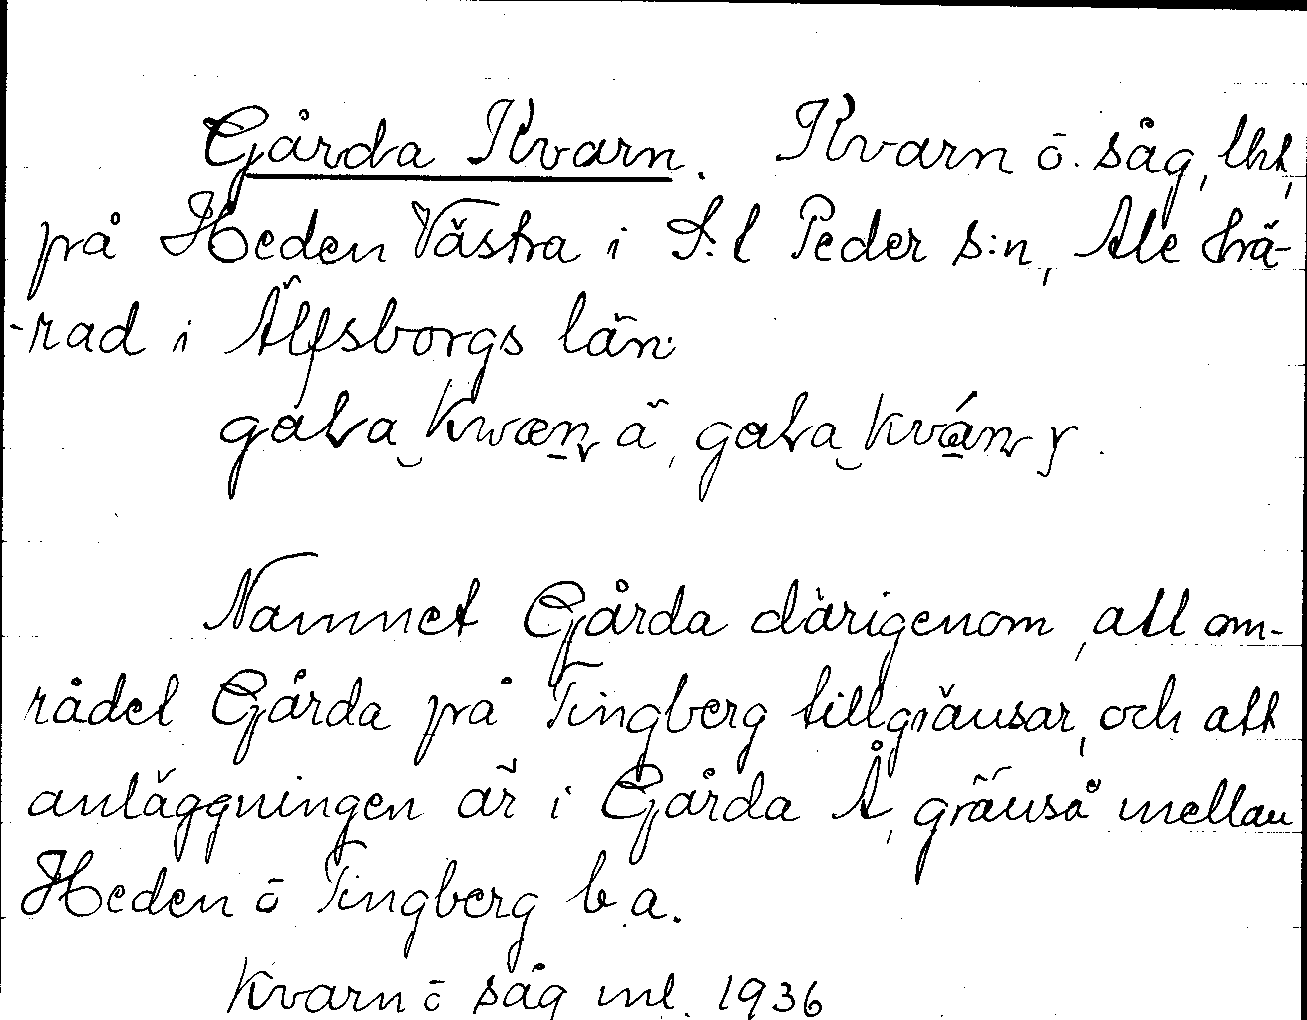 Gårda Kvarn. Kvarn ō. såg, lht,
på Heden Västra i S:t Peder s:n, Ale hä-
-rad i Älfsborgs län.
Namnet Gårda därigenom, att om-
rådet Gårda på Tingberg tillgränsar, och att
anläggningen är i Gårda Å, gränså mellan
Heden ō Tingberg b.a.
Kvarn ō såg nl. 1936